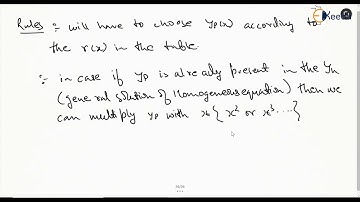 Rules :- will have to choose yp(x) according to
the r(x) in the table.
:- in case if yp is already present in the yh
(general solution of Homogeneous equation) then we
can multiply yp with x { x² or x³ ....}